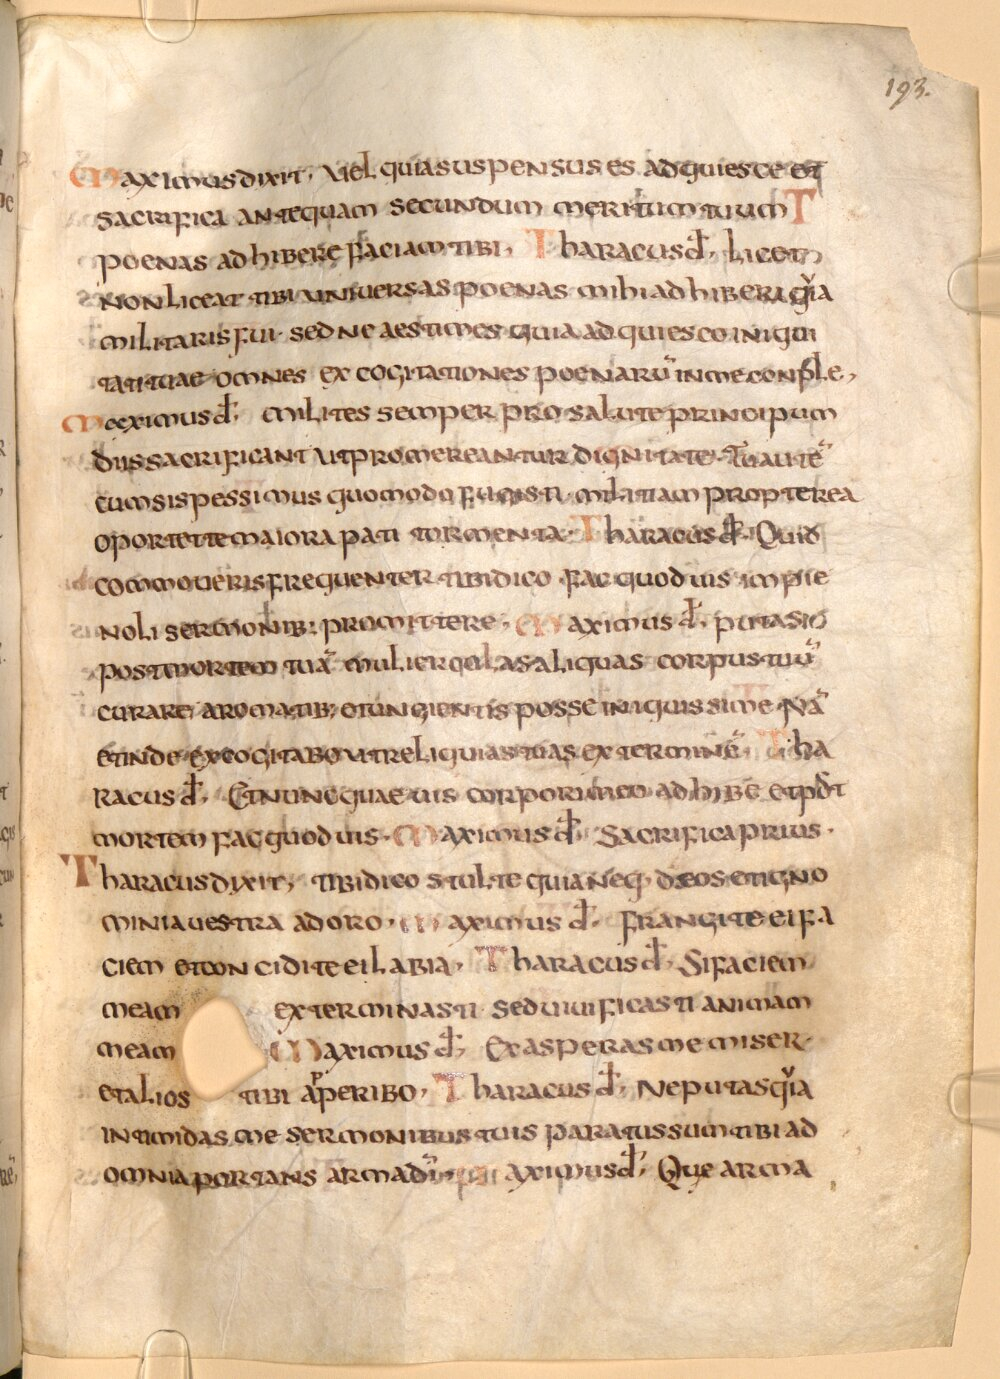 193.
Maximus dixit, Vel quia suspensus es adquiesce et
sacrifica antequam secundum meritum tuum
poenas adhibere faciam tibi, Tharacus d̄, Licet
non liceat tibi universas poenas mihi adhiberi q̓a
militaris fui· sed ne aestimes quia adquiesco iniqui
tati tuae omnes excogitationes poenarū in me conple,
Maximus d̄, milites semper pro salute principum
diis sacrificant ut promereantur dignitate·
cum sis pessimus quomodo militiam propterea
oportet te maiora pati tormenta· Tharacus d̄· Quid
commoveris frequenter tibi dico fac quod vis impiie
noli sermonib: promittere, Maximus d̄, putas
post mortem tuā mulierculas aliquas corpus tuū
curare aromatib; et ungientis posse iniquissime Nā
et inde excogitabo ut reliquias tuas exterminē, Tha
racus d̄, Et nunc quae vis corpori meo adhibe et
mortem fac quod vis· Maximus d̄, Sacrifica prius·
Tharacus dixit, tibi dico stulte quia neq; deos et igno
minia vestra adoro· Maximus d̄· frangite ei fa
ciem et concidite ei labia, Tharacus d̄, Si faciem
meam exterminasti sed vivificasti animam
meam Maximus d̄, Exasperas me miser·
et alios tibi aperibo, Tharacus d̄, Ne putas q̓a
intimidas me sermonibus tuis paratus sum tibi ad
omnia portans arma Maximus d̄, Que arma